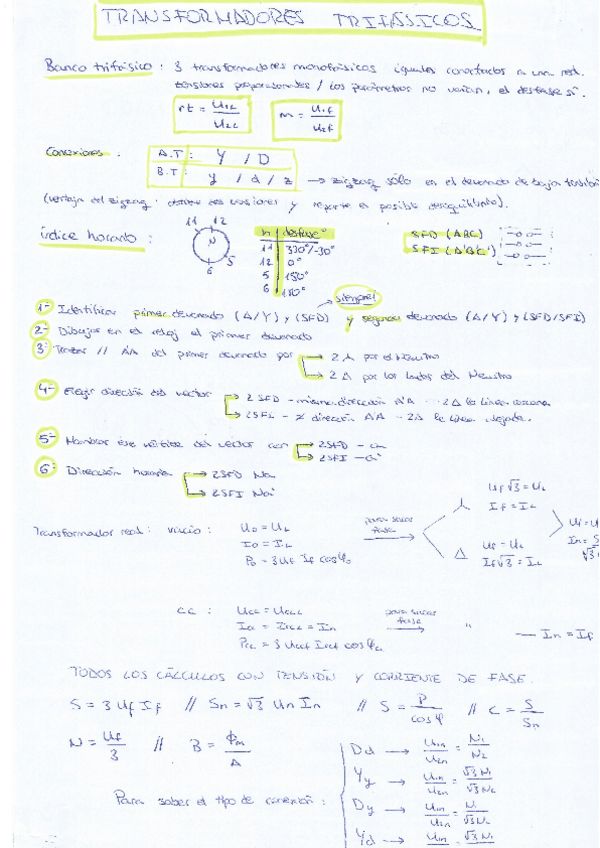 TRANSFORMADORES TRIFÁSICOS
Banco trifásico : 3 transformadores monofásicos iguales conectados a una red.
tensiones proporcionales / Los parámetros no varían, el desfase sí.
rt = U1L / U2L    m = U1f / U2f
Conexiones :
A.T : Y / D
B.T : y / d / z → zigzag sólo en el devanado de baja tensión
(ventaja del zigzag : obtiene dos tensiones y reparte el posible desequilibrio).
Índice horario :
11 12
N
5
6
h desfase°
11 330°/-30°
12 0°
5 150°
6 180°
SFD (ABC)
SFI (A'B'C')
siempre!
1- Identificar primer devanado (Δ/Y) y (SFD) y segundo devanado (Δ/Y) y (SFD/SFI)
2- Dibujar en el reloj el primer devanado
3- Trazar // A'A del primer devanado por → 2 Y por el Neutro
→ 2 Δ por los lados del Neutro
4- Elegir dirección del vector → 2 SFD - misma dirección A'A -- 2Δ la línea cercana
→ 2SFI - ≠ dirección A'A -- 2Δ la línea alejada.
5- Nombrar ese vértice del vector con → 2SFD - a
→ 2SFI - a'
6- Dirección horaria → 2SFD Na
→ 2SFI Na'
Transformador real : vacío : U0 = UL
I0 = IL
P0 = 3 Uf If cosφ0
para sacar fase →
Y Uf√3 = UL
If = IL
Δ Uf = UL
If√3 = IL
cc : Ucc = UccL
Icc = IccL = In
Pcc = 3 Uccf Iccf cosφcc
para sacar fase → " — In = If
TODOS LOS CÁLCULOS CON TENSIÓN Y CORRIENTE DE FASE.
S = 3 Uf If // Sn = √3 Un In // S = P / cosφ // C = S / Sn
N = Uf / 3 // B = Φm / A
Para saber el tipo de conexión :
Dd → U1n / U2n = N1 / N2
Yy → U1n / U2n = √3 N1 / √3 N2
Dy → U1n / U2n = N1 / √3 N2
Yd → U1n = √3 N1